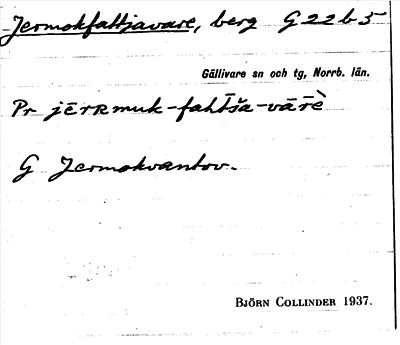 Jermokfattjavare, berg G 22 b 5
Gällivare sn och tg, Norrb. län.
Pr jērʀmuk-faht̄ša-vārè
G Jermokvantov.
BJÖRN COLLINDER 1937.